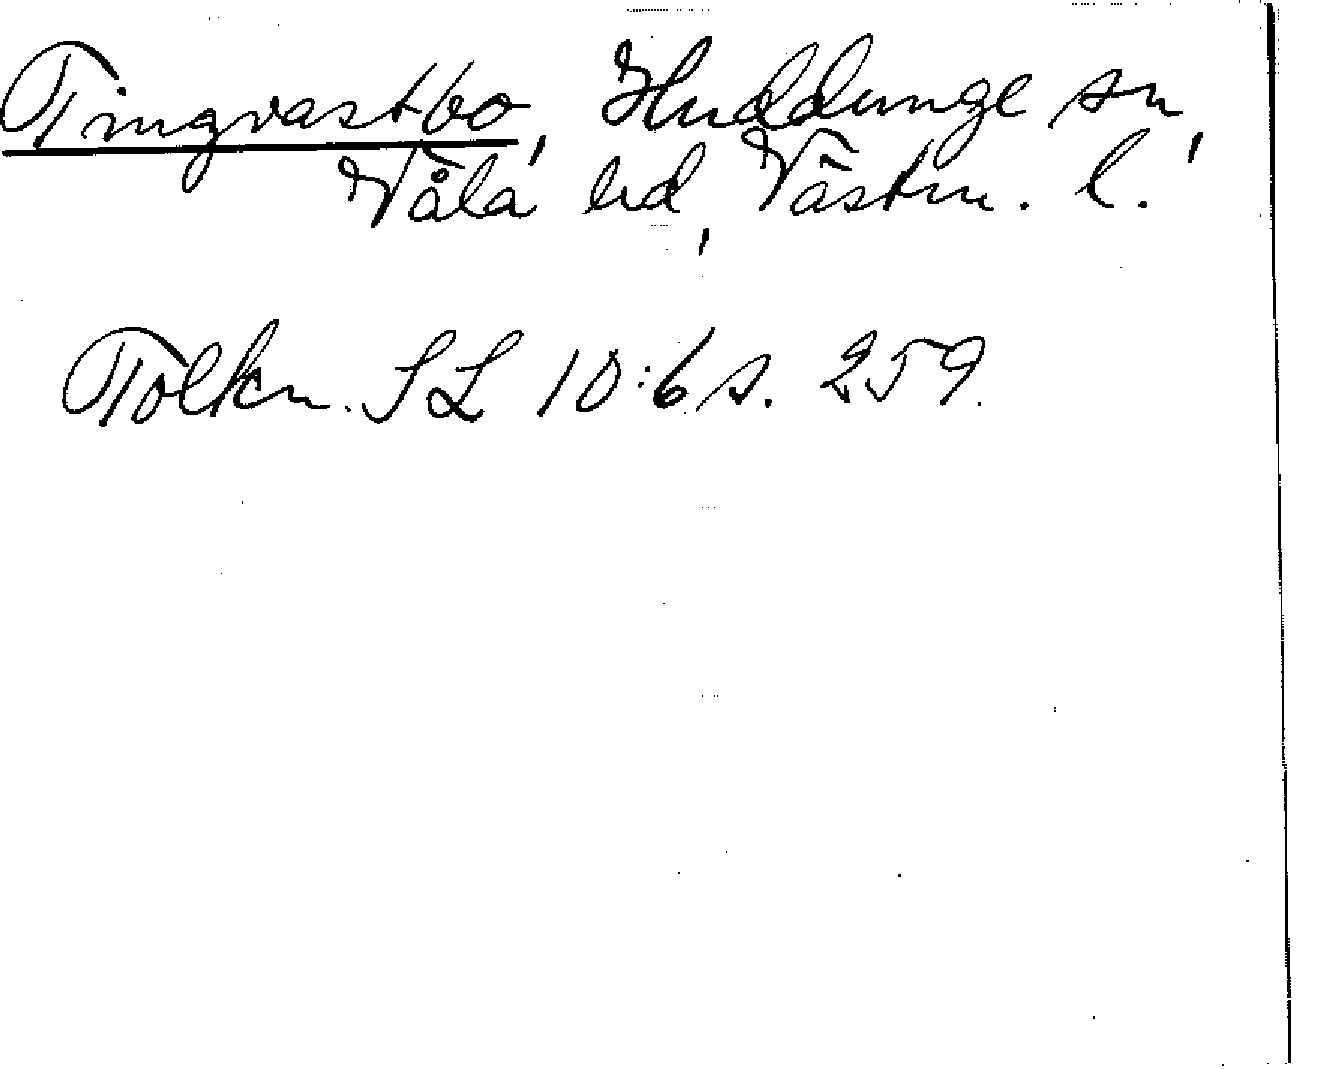 Tingvastbo, Huddunge sn,
Våla hd, Västm. l.
Tolkn. SL 10:6 s. 259.